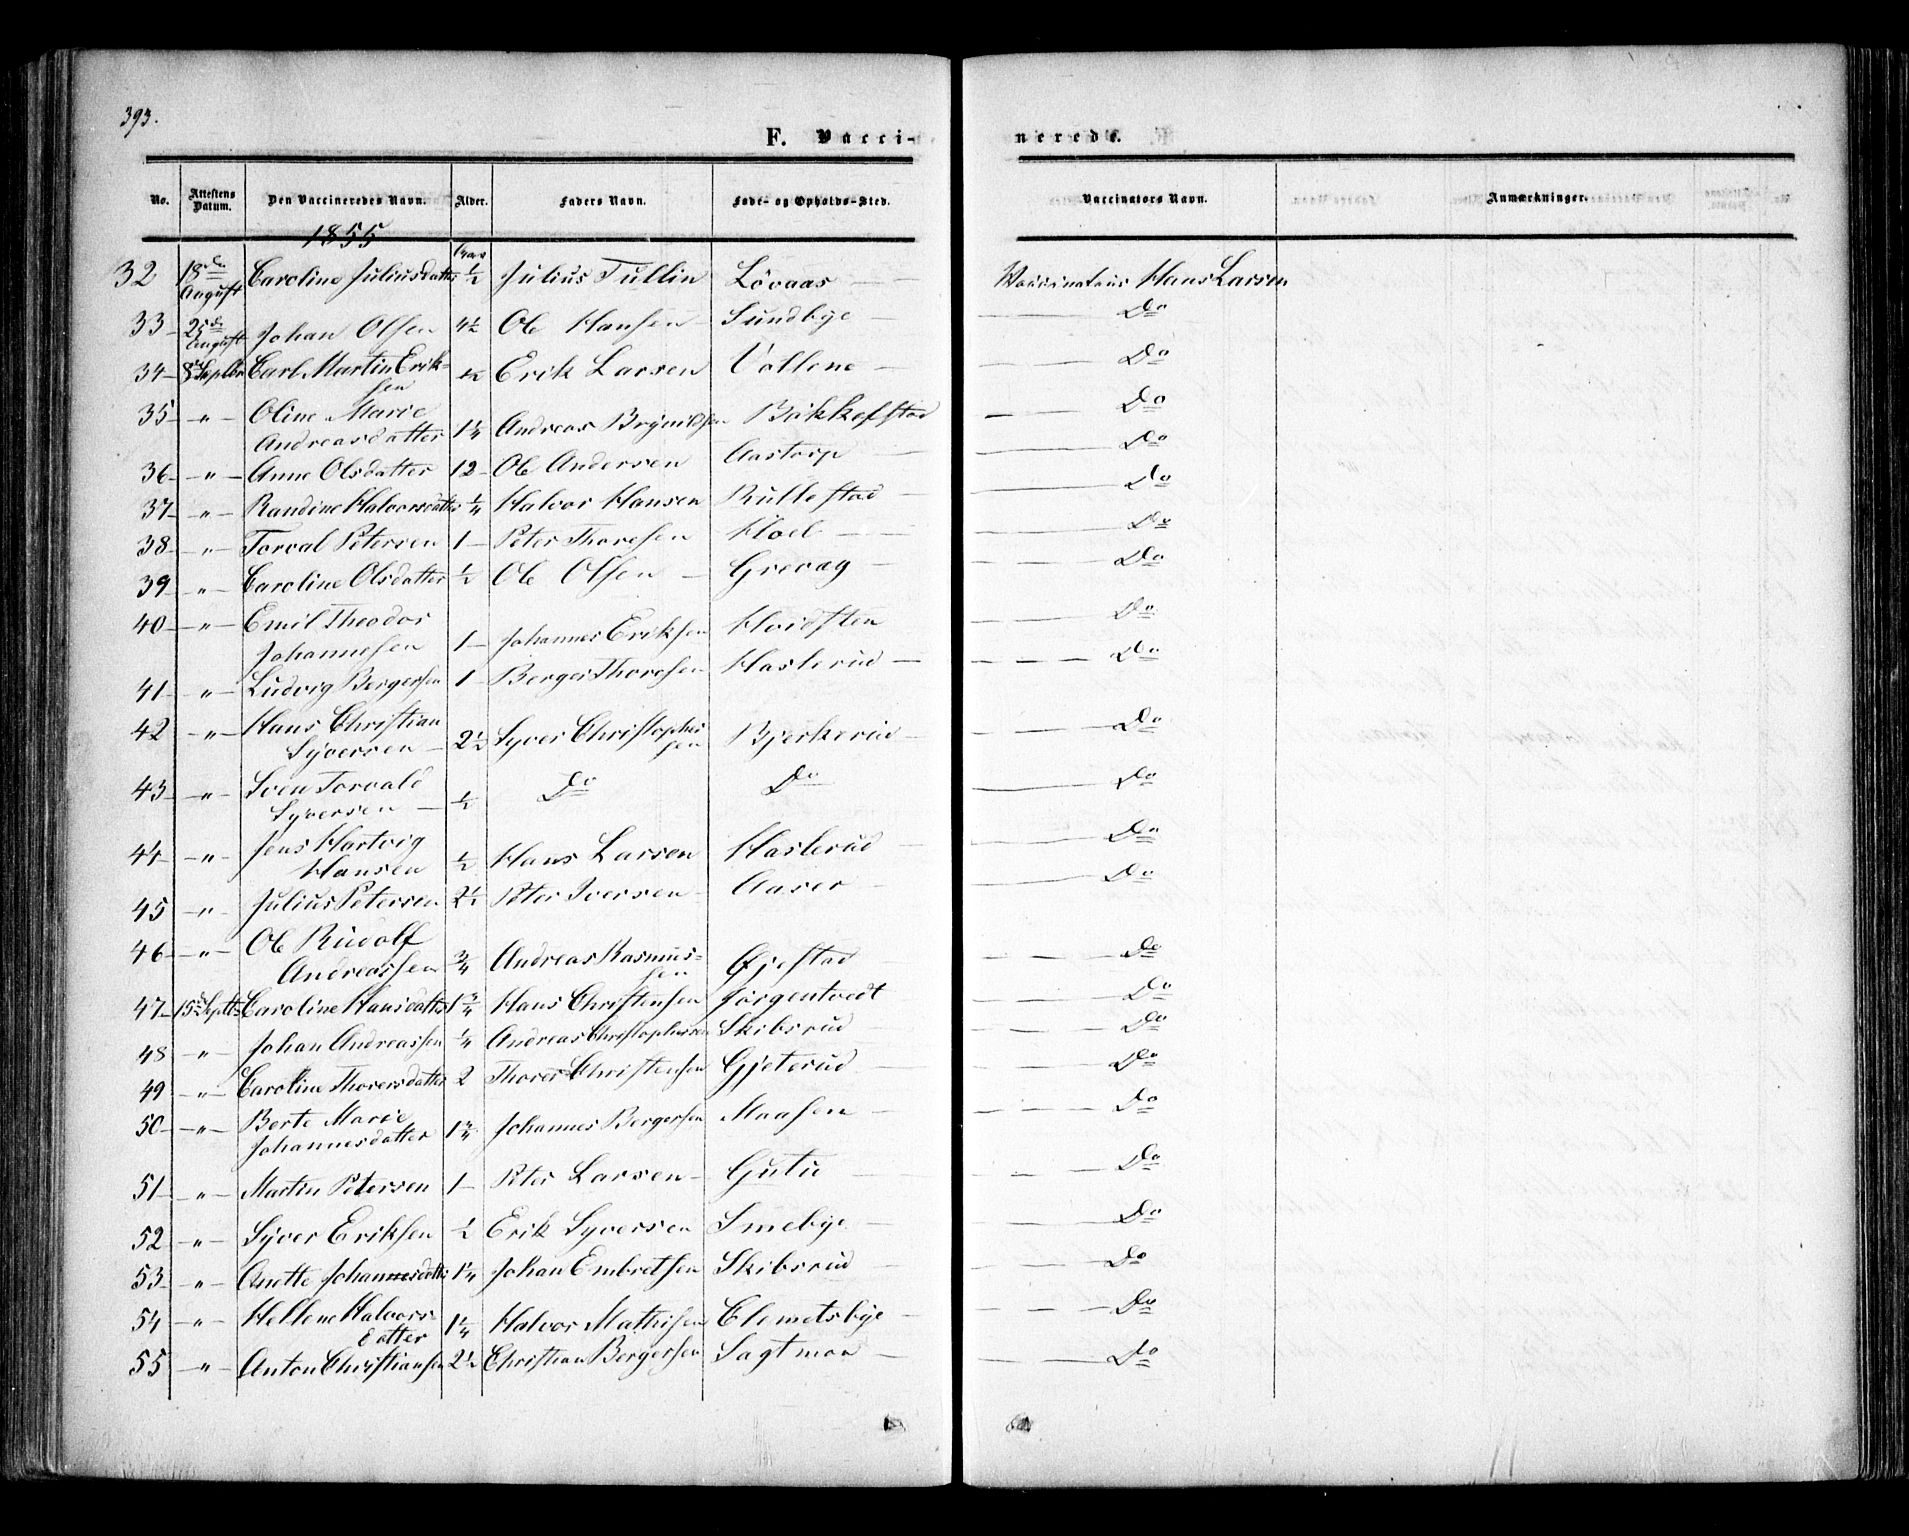 393.
F. Vacci- nerede.
No. Attestens Datum. Den Vaccineredes Navn. Alder. Faders Navn. Føde- og Opholds-Sted. Vaccinators Navn. Anmærkninger.
1855
32 18de August Caroline Juliusdatter ½ Julius Tullin Lövaas — Vaccinateur Hans Larsen
33 25de August Johan Olsen 4½ Ole Hansen Sundbye — Do
34 8de Septbr Carl Martin Erik- sen ½ Erik Larsen Vollene — Do
35 " Oline Marie Andreasdatter 1¼ Andreas Brynildsen Bakkestad — Do
36 " Anne Olsdatter 12 Ole Andersen Aastorp — Do
37 " Randine Halvorsdatter ¼ Halvor Hansen Rullestad — Do
38 " Torval Petersen 1 Peter Thoresen Hoel — Do
39 " Caroline Olsdatter ½ Ole Olsen Grevag — Do
40 " Emil Theodor Johannesen 1 Johannes Eriksen Hvidsten — Do
41 " Ludvig Bergersen 1 Berger Thoresen Haslerud — Do
42 " Hans Christian Syversen 2½ Syver Christopher sen Bjerkerud — Do
43 " Sven Torvald Syversen ½ Do Do — Do
44 " Jens Hartvig Hansen ½ Hans Larsen Haslerud — Do
45 " Julius Petersen 2½ Peter Iversen Aaser — Do
46 " Ole Rudolf Andreassen ¾ Andreas Rasmus- sen Øjestad — Do
47 15de Septbr Caroline Hansdatter 1¾ Hans Christensen Jörgentvedt — Do
48 " Johan Andreassen ¼ Andreas Christophersen Skibsrud — Do
49 " Caroline Thorersdatter 2 Thorer Christensen Gjeterud — Do
50 " Berte Marie Johannesdatter 1¾ Johannes Bergersen Maasen — Do
51 " Martin Petersen 1 Peter Larsen Gutu — Do
52 " Syver Eriksen ½ Erik Syversen Smebye — Do
53 " Anette Johannesdatter 1¼ Johan Embretsen Skibsrud — Do
54 " Hellene Halvors datter 1¼ Halvor Mathisen Clemetsbye — Do
55 " Anton Christiansen 2½ Christian Bergersen Sagtmon — Do